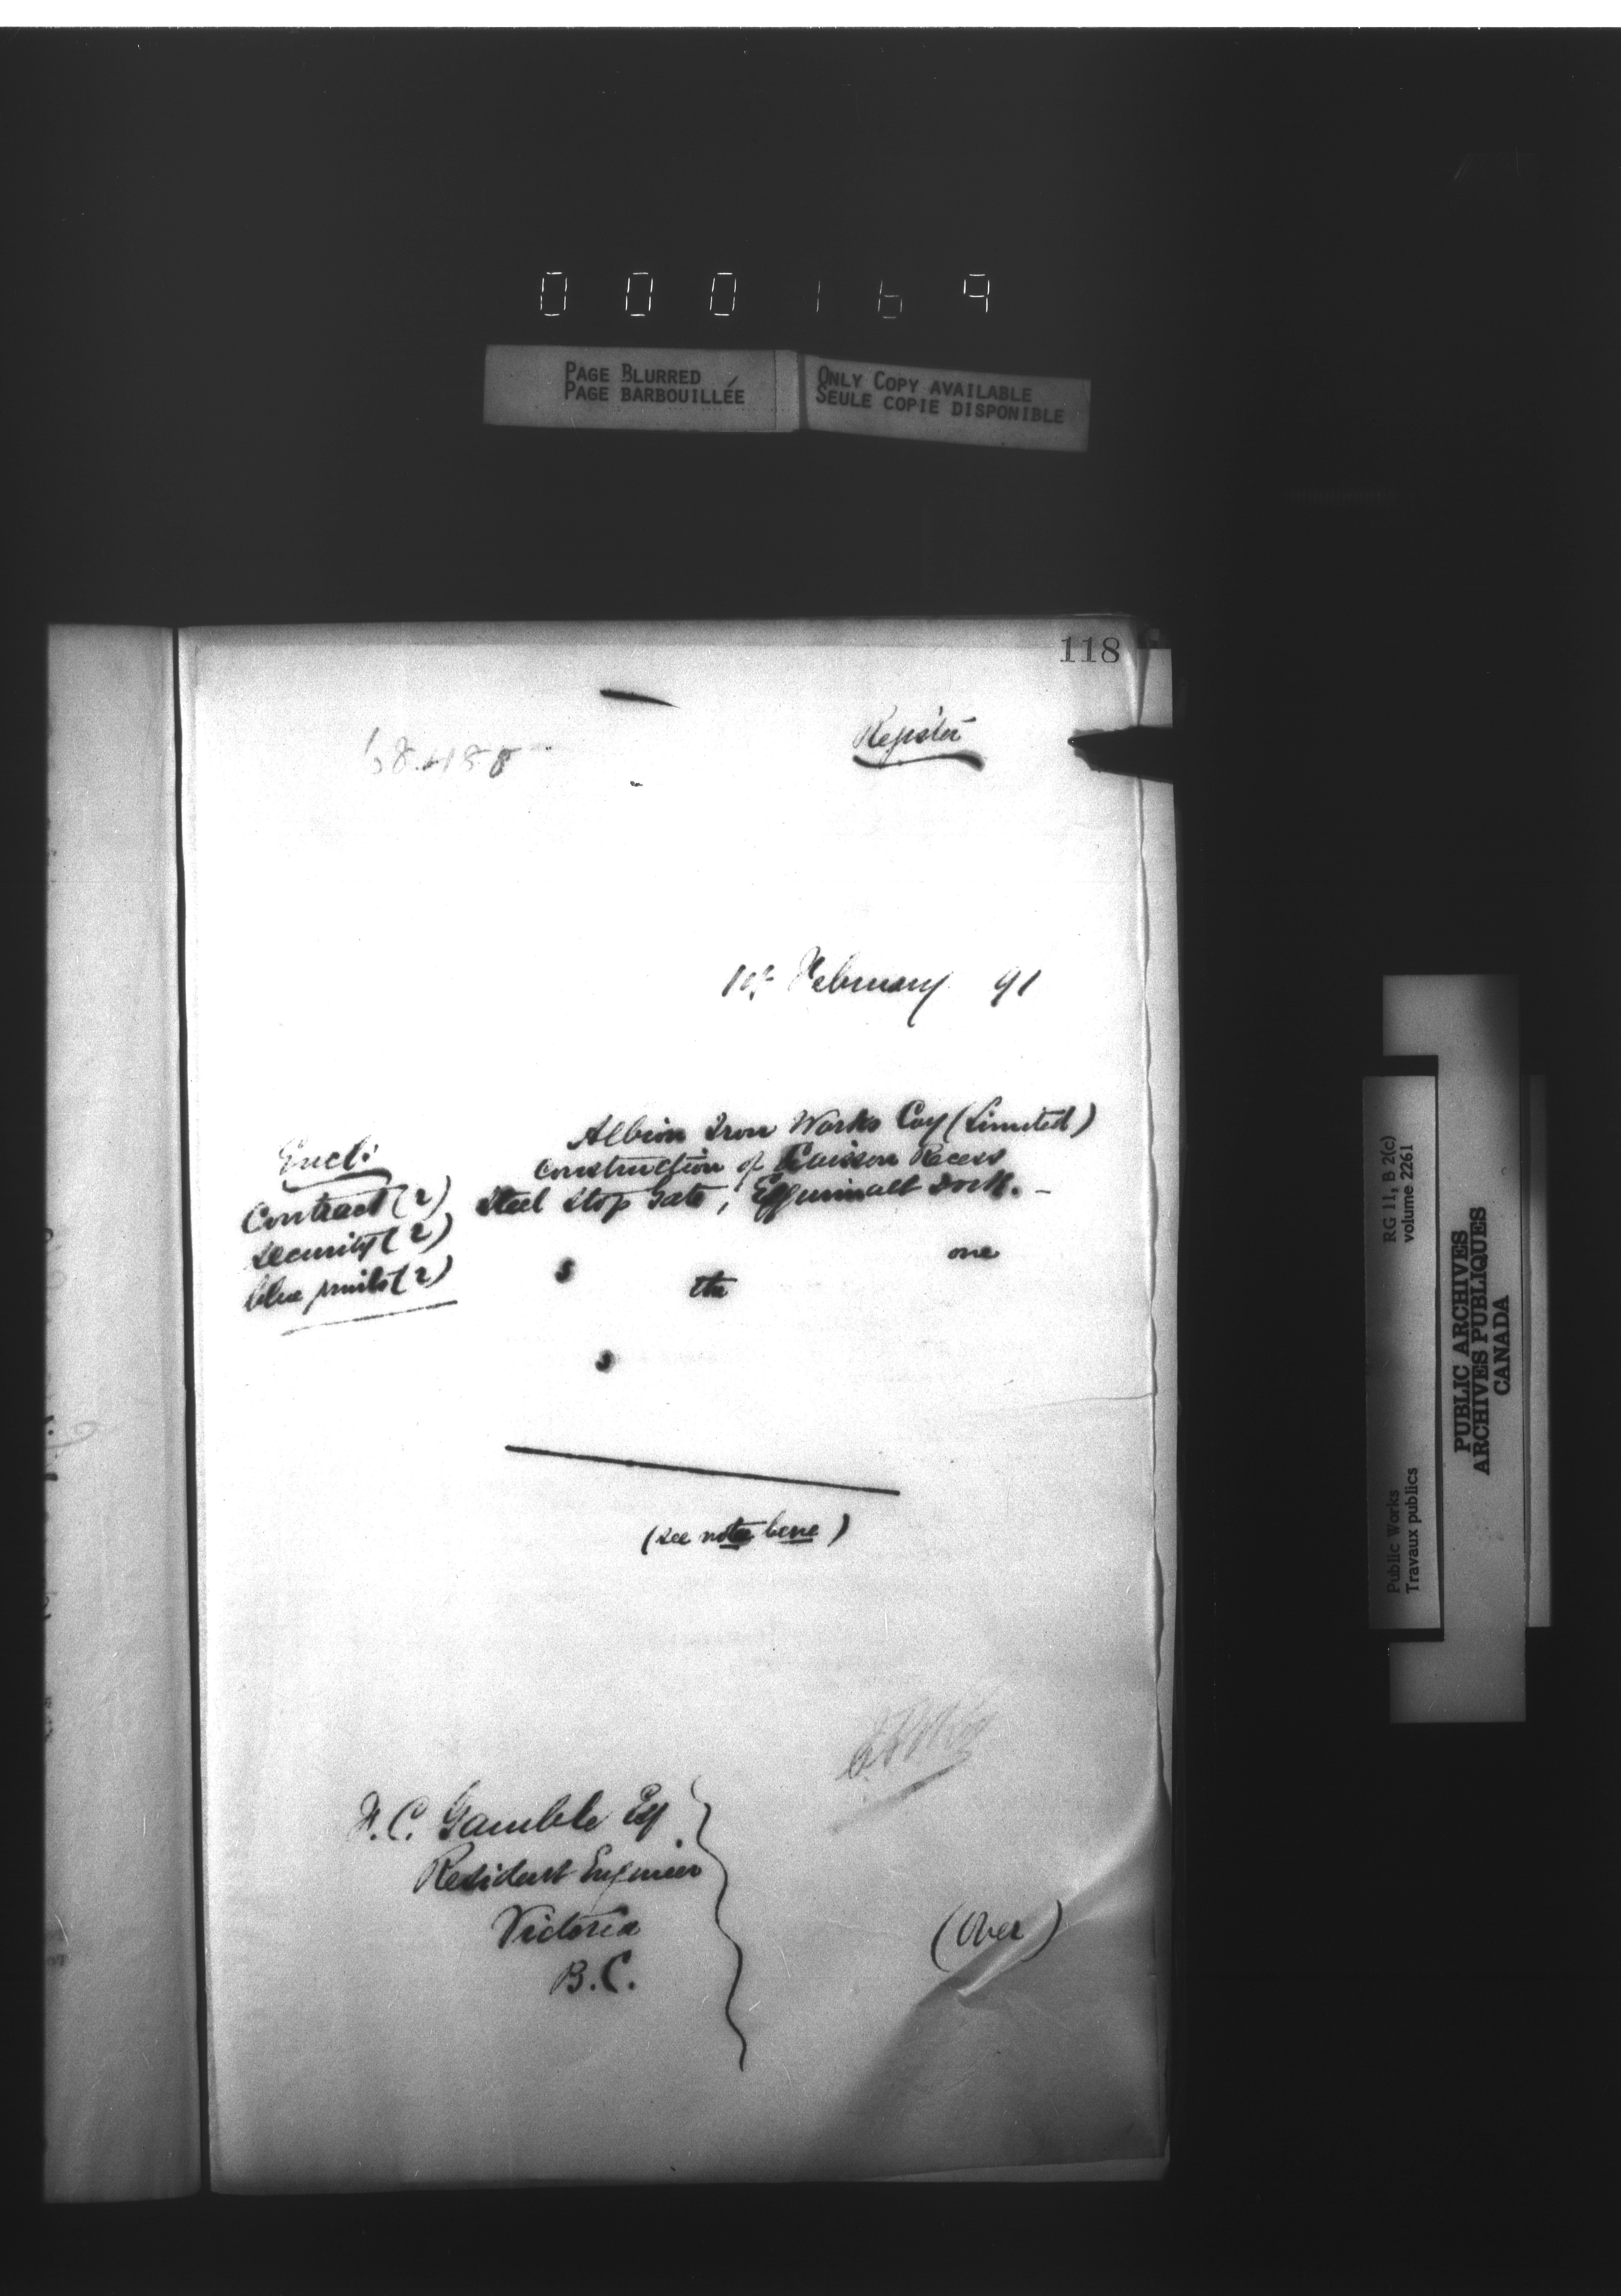 000169
PAGE BLURRED
PAGE BARBOUILLÉE
ONLY COPY AVAILABLE
SEULE COPIE DISPONIBLE
118
Register
February 91
Albion Iron Works Coy (Limited)
Construction of Caisson Recess
Steel Stop Gate, Esquimalt Dock. -
Encl:
Contract (2)
Security (2)
blue prints (2)
one
s the
s
(see nota bene)
F. C. Gamble Esq
Resident Engineer
Victoria
B.C.
(Over)
RG 11, B 2(c)
volume 2261
Public Works
Travaux publics
PUBLIC ARCHIVES
ARCHIVES PUBLIQUES
CANADA